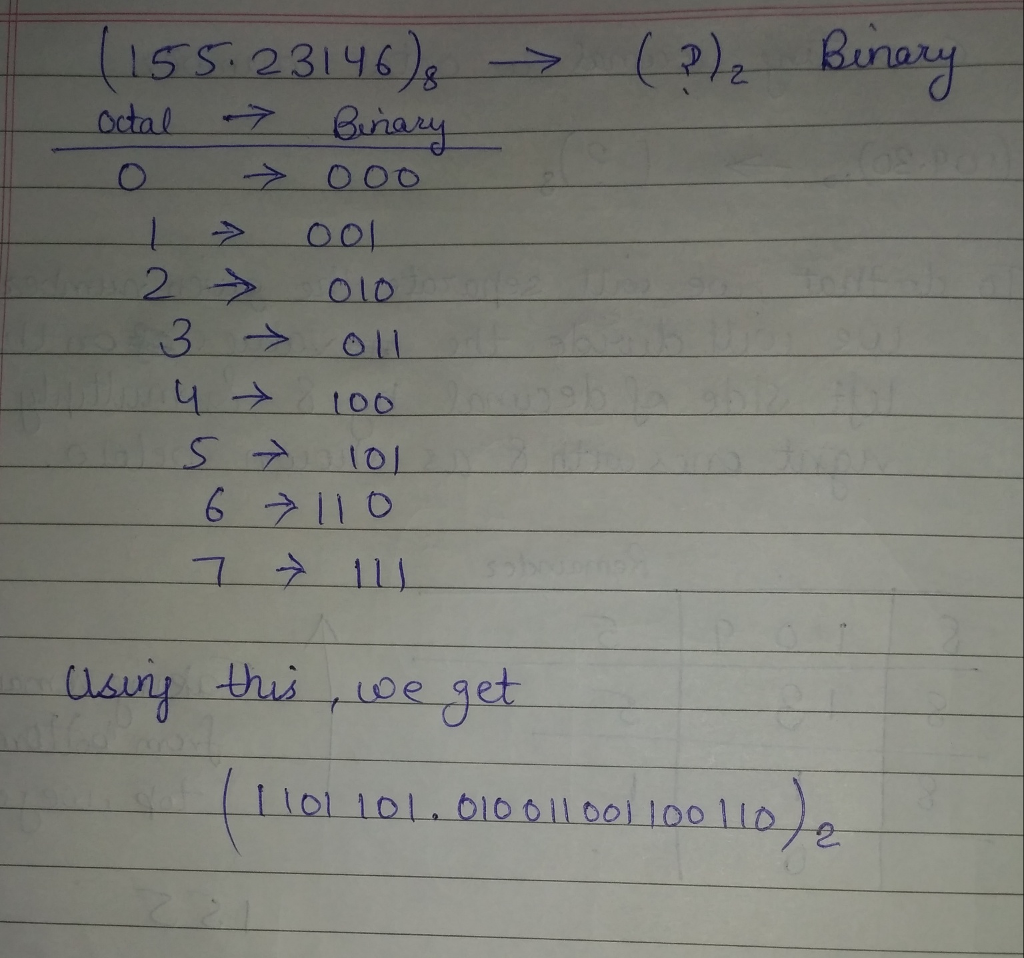 (155.23146)8 → (?)2 Binary
Octal → Binary
0 → 000
1 → 001
2 → 010
3 → 011
4 → 100
5 → 101
6 → 110
7 → 111
Using this, we get
(1101101.010011001100110)2